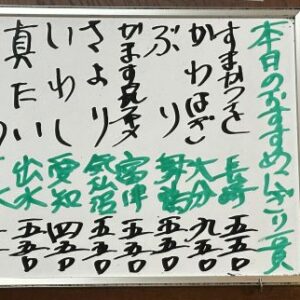 本日のおすすめにぎり一貫
すまかつを 長崎 五五〇
かわはぎ 大分 九五〇
ぶり 舞鶴 五五〇
かます炙り 宮津 五五〇
さより 気仙沼 五五〇
いわし 愛知 四五〇
真だい 出水 五五〇